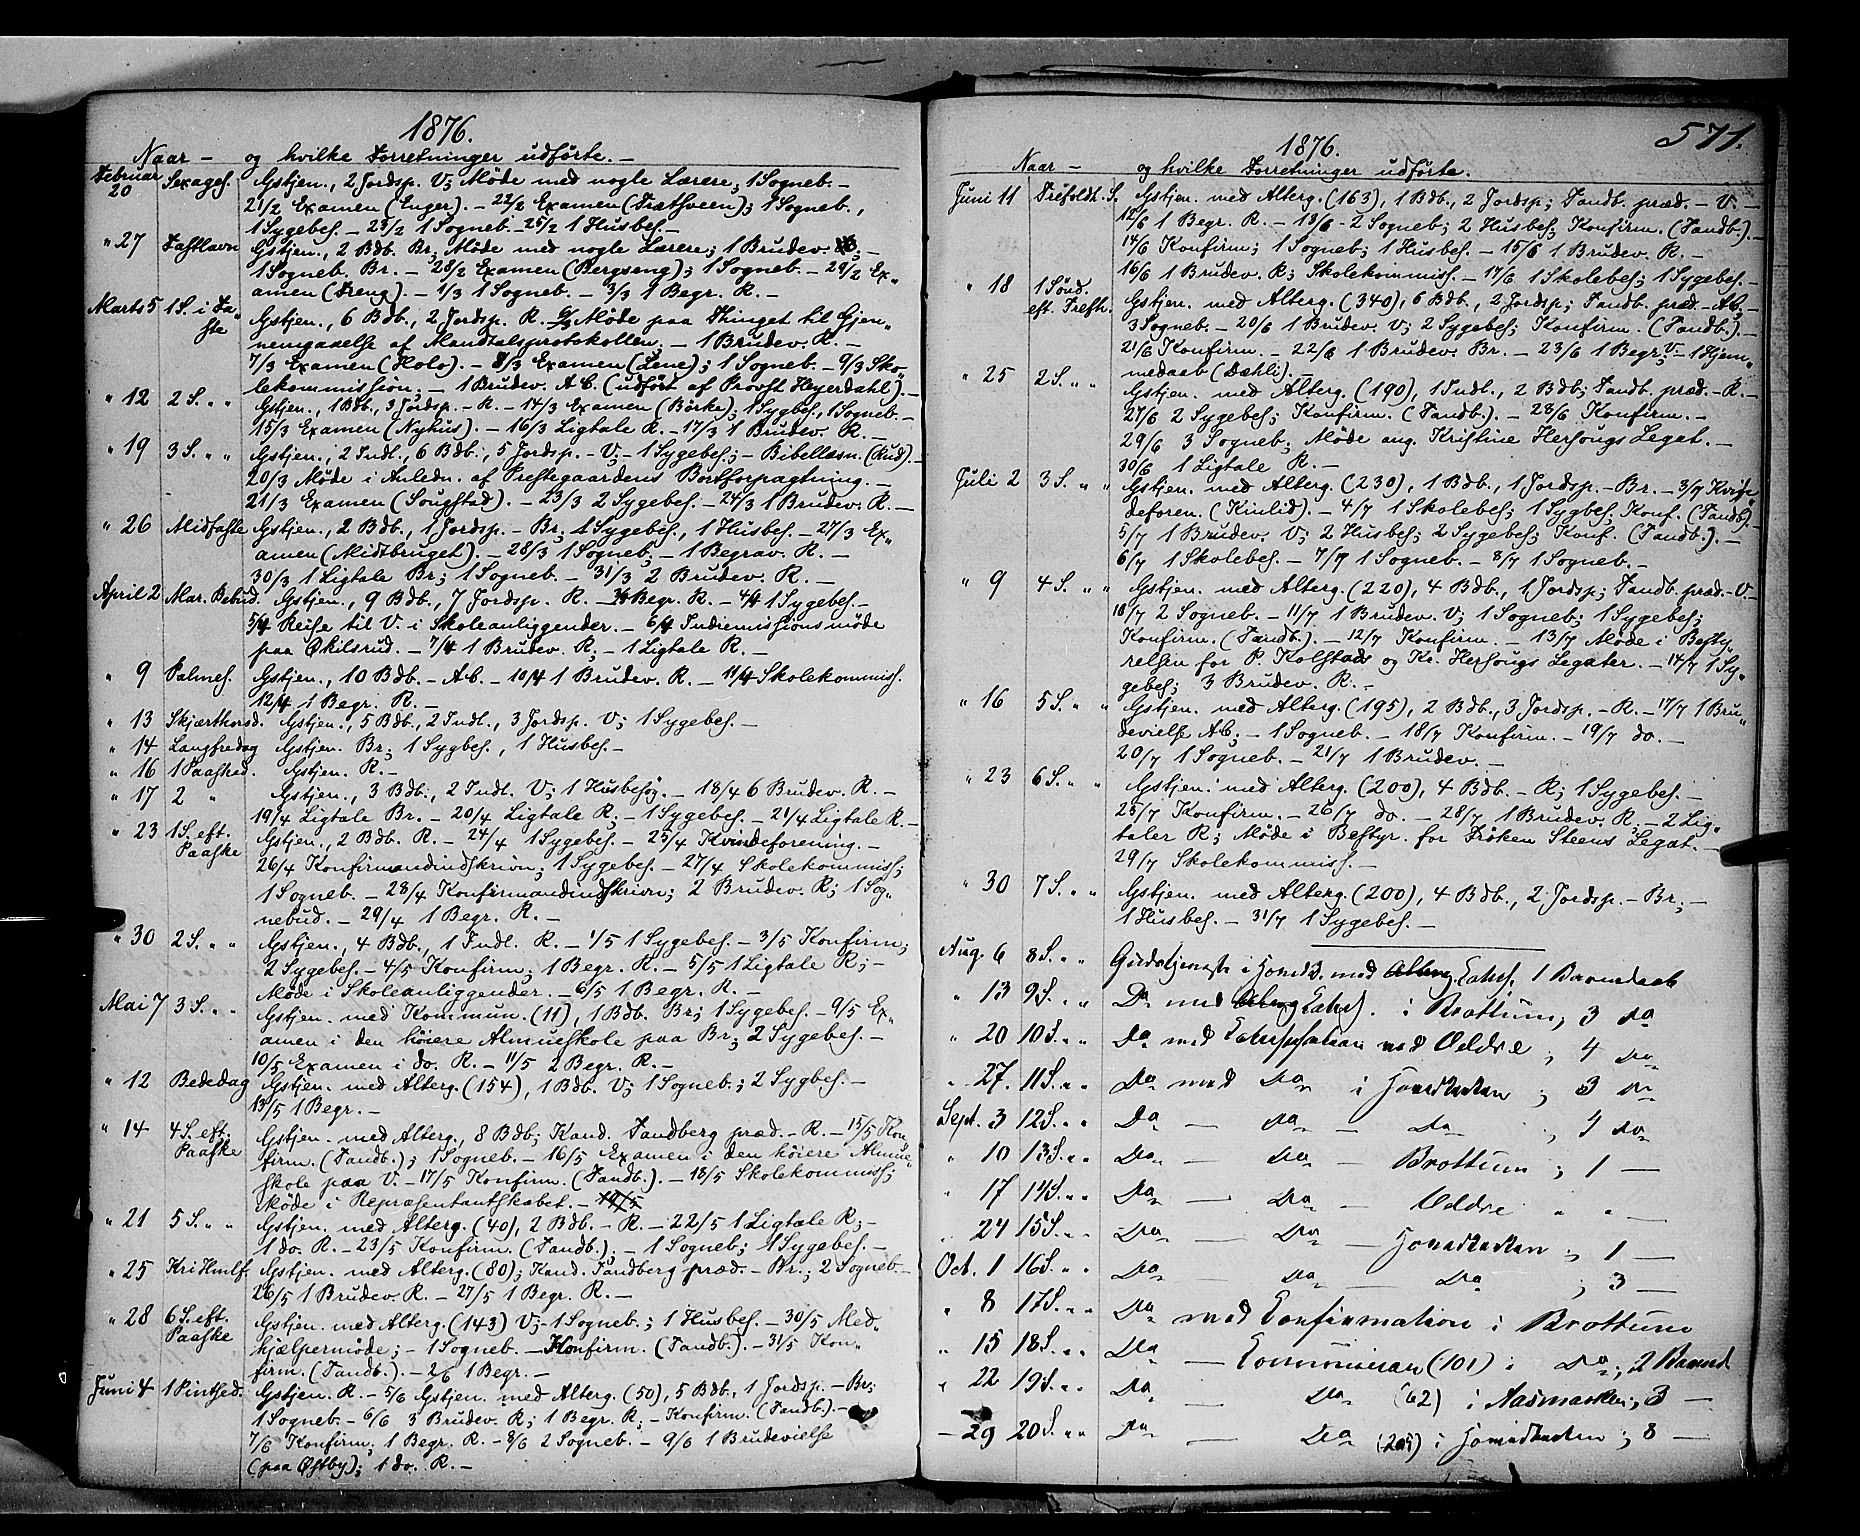 1876.
Naar — og hvilke Forretninger udførte. —
Februar 20 Sexages. Gstjen., 2 Jordsp. V; Møde med nogle Lærere; 1 Sogneb. —
21/2 Examen (Enger). — 22/2 Examen (Fræthveen); 1 Sogneb.,
1 Sygebes. — 23/2 1 Sogneb. — 25/2 1 Husbes. —
" 27 Fastlavn Gstjen., 2 Bdb. Br; Møde med nogle Lærere; 1 Brudev. —
1 Sogneb. Br. — 28/2 Examen (Bergseng); 1 Sogneb. — 29/2 Ex„
amen (Freng). — 1/3 1 Sogneb. — 3/3 1 Begr. R. —
Marts 5 1 S. i Fa„ ste Gstjen., 6 Bdb., 2 Jordsp. R. Møde paa Thinget til Gjen„
nemgaaelse af Mandtalsprotokollen. — 1 Brudev. R. —
7/3 Examen (Holo). — 8/3 Examen (Lene); 1 Sogneb. — 9/3 Sko„
lekommission. — 1 Brudev. AC. (udført af Provst Heyerdahl). —
" 12 2 S. " " Gstjen., 1 Bdb., 3 Jordsp. — R. — 14/3 Examen (Börke); 1 Sygbes., 1 Sogneb. —
15/3 Examen (Nyhus). — 16/3 Ligtale R. — 17/3 1 Brudev. R. —
" 19 3 S. " " Gstjen., 2 Indl., 6 Bdb., 5 Jordsp. — V; — 1 Sygebes.; — Bibellæsn. (Rud). —
20/3 Møde i Anledn. af Prestegaardens Bortforpagtning. —
21/3 Examen — 23/3 2 Sygebes. — 24/3 1 Brudev. R. —
" 26 Midfaste Gstjen., 2 Bdb., 1 Jordsp. — Br; 1 Sygebes., 1 Husbes. — 27/3 Ex„
amen (Midtbruget). — 28/3 1 Sogneb. — 1 Begrav. R. —
30/3 1 Ligtale Br; 1 Sogneb. — 31/3 2 Brudev. R. —
April 2 Mar. Bebud. Gstjen., 9 Bdb., 7 Jordsp. R. — 3/4 Begr. R. — 4/4 1 Sygebes. —
5/4 Reise til V. i Skoleanliggender. — 6/4 Indremissionsmøde
paa Økilsrud. — 7/4 1 Brudev. R; — 1 Ligtale R. —
" 9 Palmes. Gstjen., 10 Bdb. — AC. — 10/4 1 Brudev. R. — 11/4 Skolekommiss.
12/4 1 Begr. R. —
" 13 Skjærthorsd. Gstjen., 5 Bdb., 2 Indl., 3 Jordsp. V; 1 Sygebes. —
" 14 Langfredag Gstjen. Br; 1 Sygbes., 1 Husbes. —
" 16 1 Paasked. Gstjen. R. —
" 17 2 " Gstjen., 3 Bdb., 2 Indl. V; 1 Husbesög. — 18/4 6 Brudev. R. —
19/4 Ligtale Br. — 20/4 Ligtale R; — 1 Sygebes. — 21/4 Ligtale R. —
" 23 1 S. eft. Paaske Gstjen., 2 Bdb. R. — 24/4 1 Sygebes. — 25/4 Kvindeforening. —
26/4 Konfirmandindskrivn; 1 Sygebes. — 27/4 Skolekommiss;
1 Sogneb. — 28/4 Konfirmandindskrivn; 2 Brudev. R; 1 Sog„
nebud. — 29/4 1 Begr. R. —
" 30 2 S. " " Gstjen., 4 Bdb., 1 Indl. R. — 1/5 1 Sygebes. — 3/5 Konfirm;
2 Sygebes. — 4/5 Konfirm; 1 Begr. R. — 5/5 1 Ligtale R; —
Møde i Skoleanliggender. — 6/5 1 Begr. R. —
Mai 7 3 S. " " Gstjen. med Kommun. (11), 1 Bdb. Br; 1 Sygebes. — 9/5 Ex„
amen i den høiere Almueskole paa Br; 2 Sygebes. —
10/5 Examen i do. R. — 11/5 2 Begr. R. —
" 12 Bededag Gstjen. med Alterg. (154), 1 Bdb. V; 1 Sogneb.; 2 Sygbes. —
13/5 1 Begr. —
" 14 4 S. eft. Paaske Gstjen. med Alterg., 8 Bdb; Kand. Sandberg præd. — R. — 15/5 Kon„
firm. (Sandb.); 1 Sogneb. — 16/5 Examen i den höiere Almue„
skole paa V. — 17/5 Konfirm. (Sandb.). — 18/5 Skolekommiss;
Møde i Repræsentantskabet. — 19/5
" 21 5 S. " " Gstjen. med Alterg. (40), 2 Bdb. — R. — 22/5 1 Ligtale R; —
1 do. R. — 23/5 Konfirm. (Sandb.); — 1 Sogneb; 1 Sygebes. —
" 25 Kri Hmlf. Gstjen. med Alterg. (80); Kand. Sandberg præd. — Br.; 2 Sogneb. —
26/5 1 Brudev. R. — 27/5 1 Begr. R. —
" 28 6 S. eft. Paaske Gstjen. med Alterg. (143) V; — 1 Sogneb.; 1 Husbes. — 30/5 Med„
hjælpermöde; — 1 Sogneb. — Konfirm. (Sandb.). — 31/5 Kon„
firm. (Sandb.). — 2/6 1 Begr. —
Juni 4 1 Pintsed. Gstjen. R. — 5/6 Gstjen. med Alterg. (50), 5 Bdb., 1 Jordsp. — Br;
1 Sogneb. — 6/6 3 Brudev. R; 1 Begr. R; — Konfirm. (Sandb.). —
7/6 Konfirm; 1 Begr. R. — 8/6 2 Sogneb. — 9/6 1 Brudevielse
(paa Østby); 1 do. R. —
571.
1876.
Naar — og hvilke Forretninger udførte.
Juni 11 Trefoldt. S. Gstjen. med Alterg. (163), 1 Bdb., 2 Jordsp; Sandb. præd. — V. —
12/6 1 Begr. R. — 13/6 — 2 Sogneb; 2 Husbes; Konfirm. (Sandb.). —
14/6 Konfirm; 1 Sogneb; 1 Husbes. — 15/6 1 Brudev. R. —
16/6 1 Brudev. R; Skolekommiss. — 17/6 1 Skolebes; 1 Sygebes. —
" 18 1 Sönd. eft. Trefh. Gstjen. med Alterg. (340), 6 Bdb., 2 Jordsp; Sandb. præd. — AC; —
3 Sogneb. — 20/6 1 Brudev. V; 2 Sygebes; Konfirm. (Sandb.). —
21/6 Konfirm. — 22/6 1 Brudev. Br. — 23/6 1 Begr. V — 1 Hjem„
medaab (Dæhli). —
" 25 2 S. " " Gstjen. med Alterg. (190), 1 Indl., 2 Bdb; Sandb. præd. — R. —
27/6 2 Sygebes; Konfirm. (Sandb.). — 28/6 Konfirm. —
29/6 3 Sogneb; Møde ang. Kristine Hersougs Legat. —
30/6 1 Ligtale R. —
Juli 2 3 S. " " Gstjen. med Alterg. (230), 1 Bdb., 1 Jordsp. — Br. — 3/7 Kvin„
deforen. (Kinlid). — 4/7 1 Skolebes; 1 Sygbes, Konf. (Sandb). —
5/7 1 Brudev. V; 2 Husbes; 2 Sygebes; Konf. (Sandb.). —
6/7 1 Skolebes. — 7/7 1 Sogneb. — 8/7 1 Sogneb. —
" 9 4 S. " " Gstjen. med Alterg. (220), 4 Bdb., 1 Jordsp; Sandb. præd. — V. —
10/7 2 Sogneb. — 11/7 1 Brudev. V; 1 Sogneb; 1 Sygebes;
Konfirm. (Sandb.). — 12/7 Konfirm. — 13/7 Møde i Besty„
relsen for P. Kolstads og Kr. Hersougs Legater. — 14/7 1 Sy„
gebes; 3 Brudev. R. —
" 16 5 S. " " Gstjen. med Alterg. (195), 2 Bdb., 3 Jordsp. — R. — 17/7 1 Bru„
devielse AC; — 1 Sogneb. — 18/7 Konfirm. — 19/7 do. —
20/7 1 Sogneb. — 21/7 1 Brudev. —
" 23 6 S. " " Gstjen. med Alterg. (200), 4 Bdb. — R; 1 Sygebes. —
25/7 Konfirm. — 26/7 do. — 28/7 1 Brudev. R. — 2 Lig„
taler R; Møde i Bestyr. for Frøken Steens Legat. —
29/7 Skolekommiss. —
" 30 7 S. " " Gstjen. med Alterg. (200), 4 Bdb., 2 Jordsp. — Br; —
1 Husbes. — 31/7 1 Sygebes. —
Aug. 6 8 S. " " Gudstjeneste i Hovedk. med Catech. 1 Barnedaab
" 13 9 S. " " Do med Catech. i Brottum; 3 do
" 20 10 S. " " Do med Catechisation ved Ældre; 4 Do
" 27. 11 S. " " Do med Do i Hovedkirken; 3 Do
Sept. 3 12 S. " " Do — Do — do; 4 do
" 10 13 S. " " Do — Do — Brottum; 1 —
" 17 14 S. " " Do — Do — Ældre " " —
" 24 15 S. " " Do — Do — Hovedkirken; 1 —
Oct. 1 16 S. " " Do — Do — Do; 3 —
" 8 17 S. " " Do med Confirmation i Brottum
" 15 18 S. " " Do — Communion (101) i Do; 2 Barned
" 22 19 S. " " Do — Do (62) i Aasmarken; 3 —
— 29 20 S. " " Do — Do (205) i Hovedkirken; 8 —